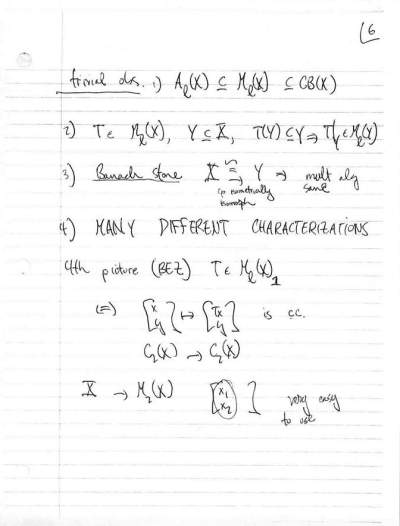 6
trivial obs. 1) A_ℓ(X) ⊆ M_ℓ(X) ⊆ CB(X)
2) T ∈ M_ℓ(X), Y ⊆ X, T(Y) ⊆ Y ⇒ T|_Y ∈ M_ℓ(Y)
3) Banach Stone X ≅ Y → mult alg
isometrically same
isomorph
4) MANY DIFFERENT CHARACTERIZATIONS
4th picture (BEZ) T ∈ M_ℓ(X)_1
(=) [x y] ↦ [Tx y] is cc.
C_2(X) → C_2(X)
X → M_2(X) [x_1 x_2] very easy
to use